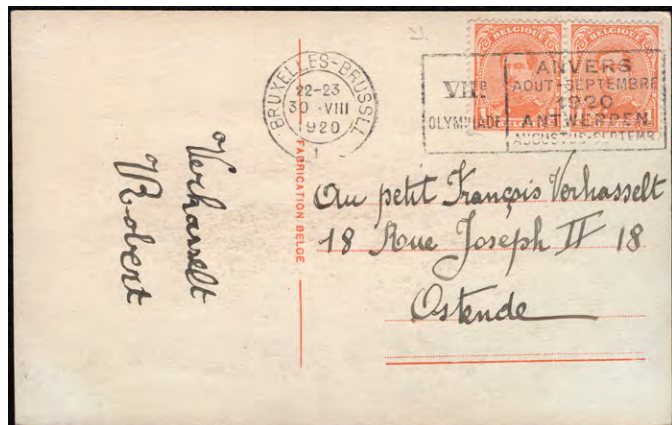 BELGIQUE BELGIQUE
BRUXELLES-BRUSSEL
22-23
30 VIII
1920
1
VIIe
OLYMPIADE
ANVERS
AOUT-SEPTEMBRE
1920
ANTWERPEN
AUGUSTUS-SEPTEMB
FABRICATION BELGE
Verhasselt
Robert
Au petit François Verhasselt
18 Rue Joseph II 18
Ostende